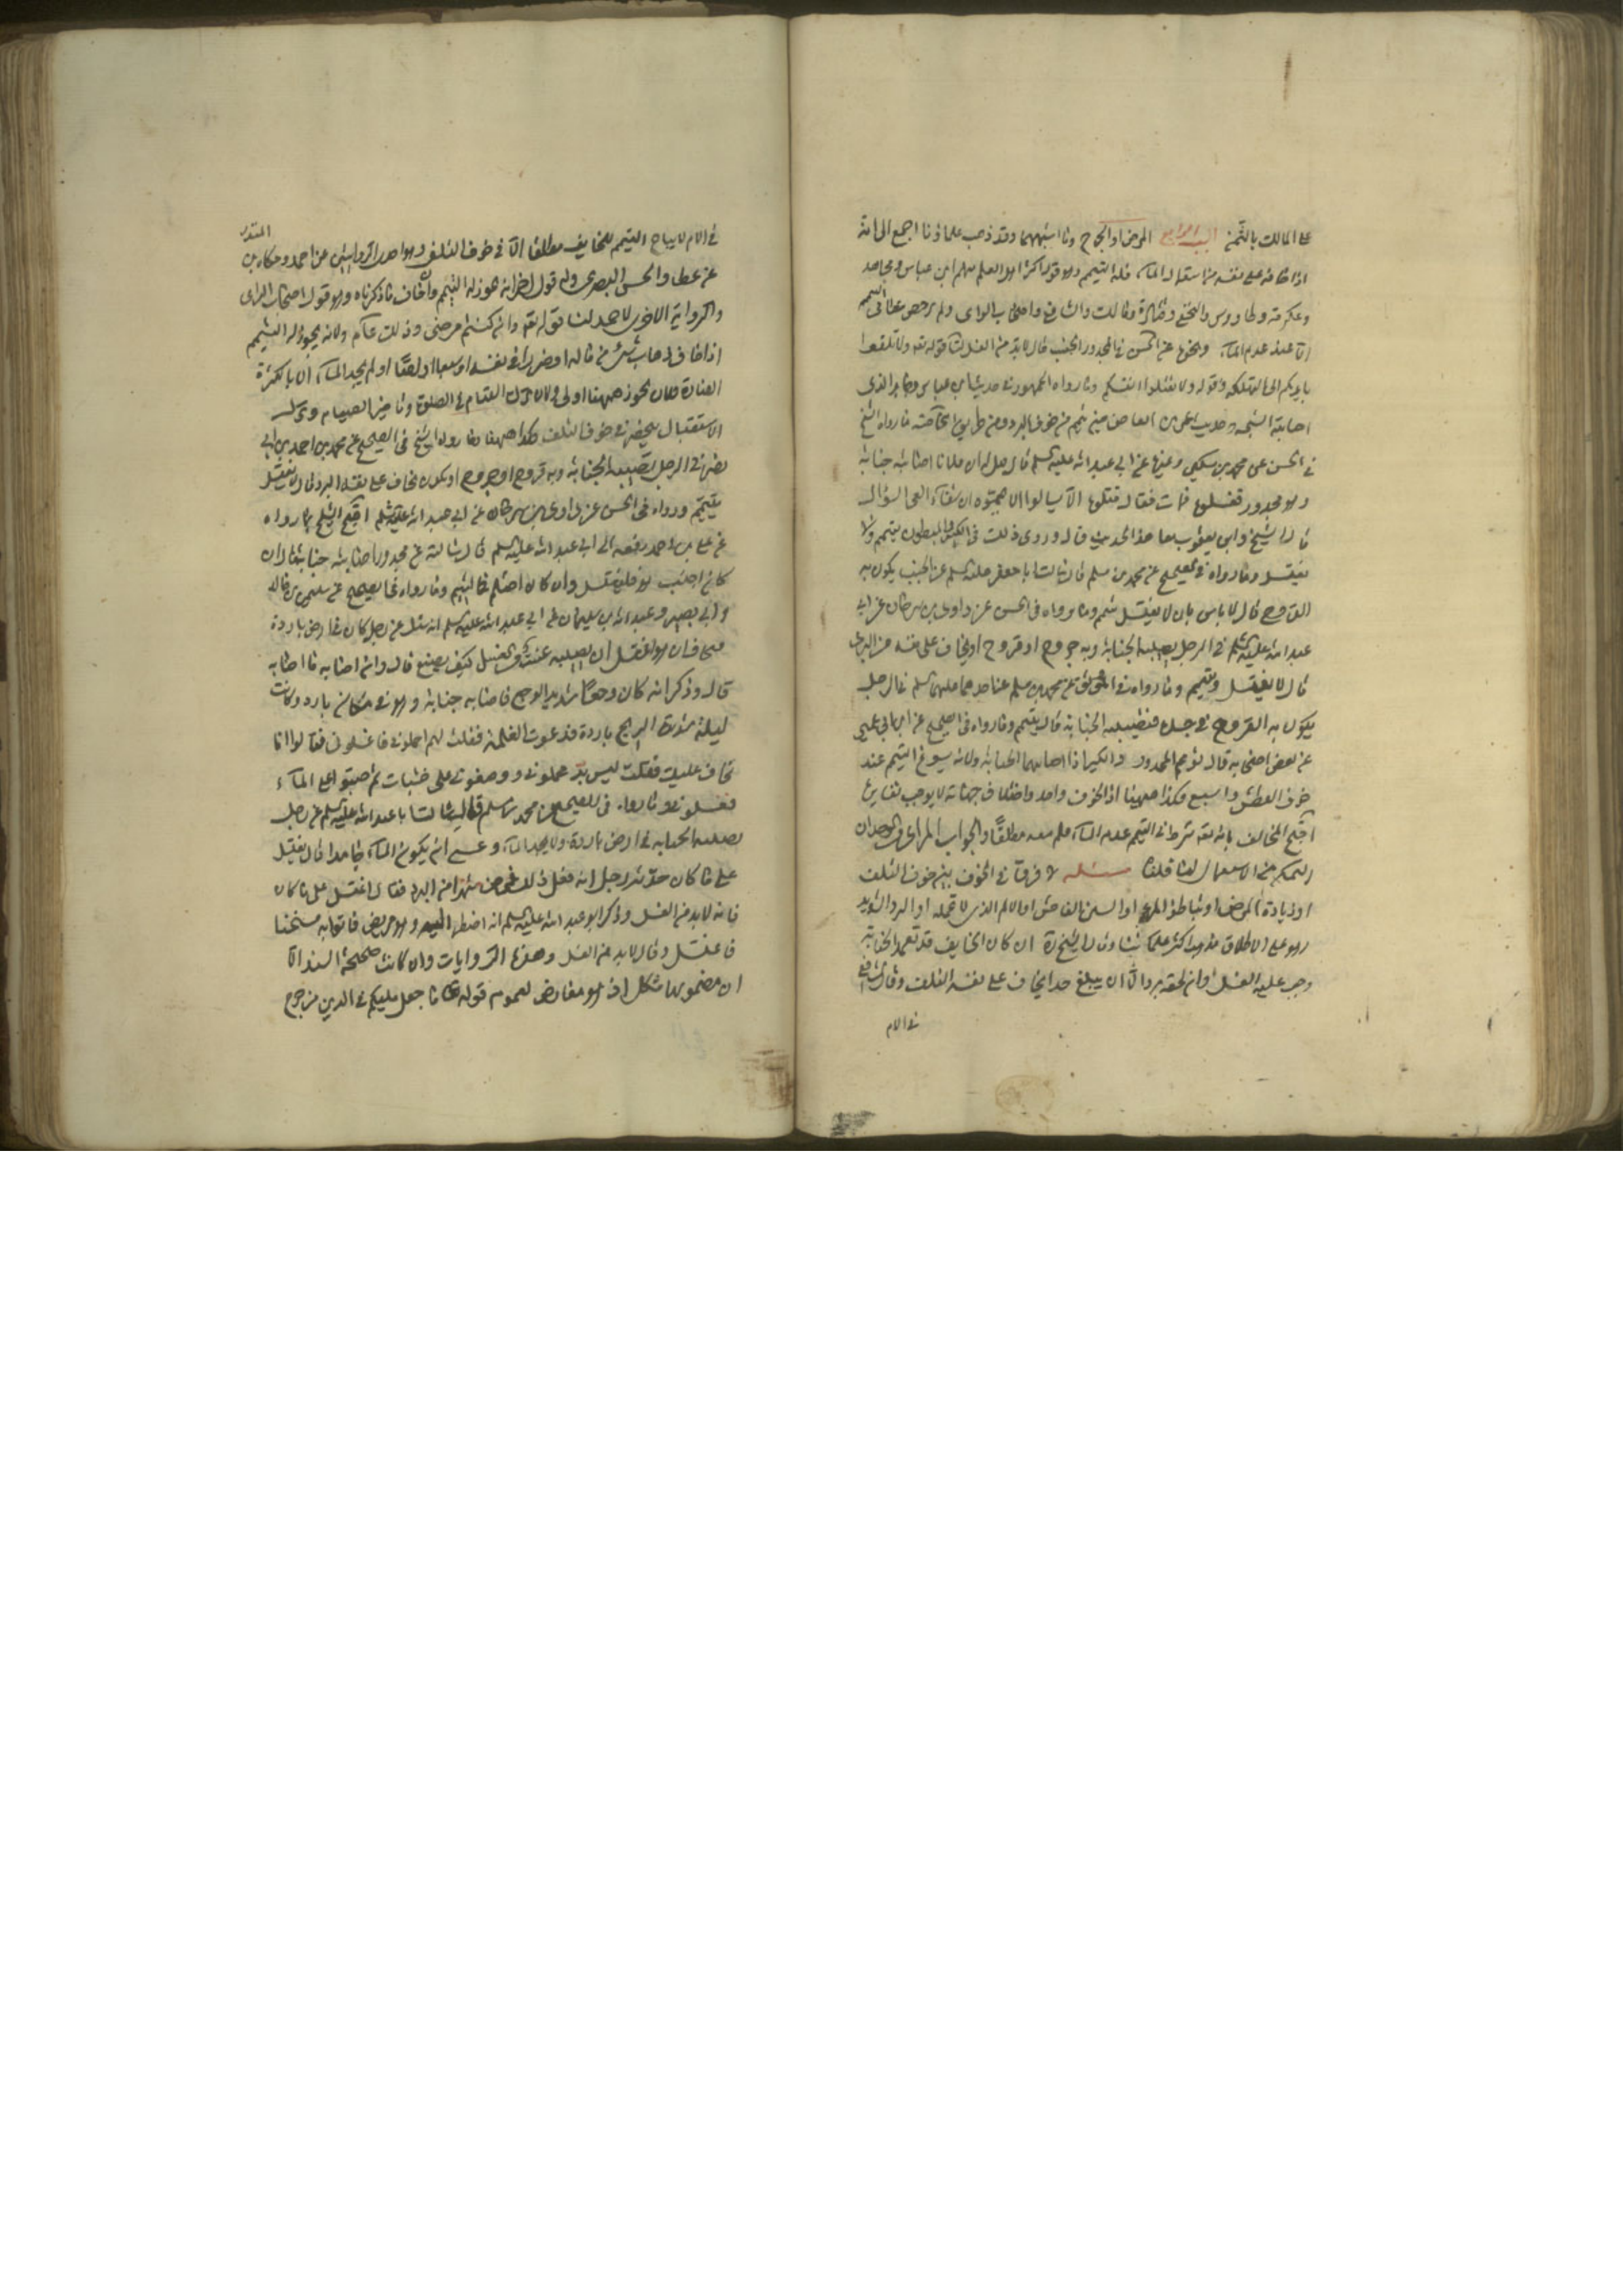 على المالك بالثمن السبب الرابع المرض او الجراح وما اشبههما وقد ذهب علماؤنا اجمع الى انه
اذا خاف على نفسه من استعمال الماء فله التيمم وهو قول اكثر اهل العلم منهم ابن عباس ومجاهد
وعكرمة وطاووس والنخعي وقتادة ومالك والشافعي واصحاب الراى ولم يرخص عطا فى التيمم
الا عند عدم الماء ونحوه عن الحسن فى المجدور الجنب قال لابد من الغسل لنا قوله تعه ولا تلقوا
بايديكم الى التهلكة وقوله ولا تقتلوا انفسكم وما رواه الجمهور فى حديث ابن عباس وجابر الذى
اصابته الشجة وحديث عمرو بن العاص حين تيمم من خوف البرد ومن طريق الخاصة ما رواه الشيخ
فى الحسن عن محمد بن سكين وغيره عن ابي عبد الله عليه السلم قال قيل له ان فلانا اصابته جنابة
وهو مجدور فغسلوه فمات فقال قتلوه الا سالوا الا يمموه ان شفاء العى السؤال
قال الشيخ وابن يعقوب معا هذا الحديث قال وروى ذلك فى الكسير والمبطون يتيمم ولا
يغتسل وما رواه فى الصحيح عن محمد بن مسلم قال سالت ابا جعفر عليه السلم عن الجنب يكون به
القروح قال لا باس بان لا يغتسل يتيمم وما رواه فى الحسن عن داود بن سرحان عن ابى
عبد الله عليه السلم فى الرجل يصيبه الجنابة وبه جروح او قروح او يخاف على نفسه من البرد
قال لا يغتسل ويتيمم وما رواه فى الموثق عن محمد بن مسلم عن احدهما عليهما السلم فى الرجل
يكون به القروح فى جسده فتصيبه الجنابة قال يتيمم وما رواه فى الصحيح عن ابن ابى عمير
عن بعض اصحابه قال يؤمم المجدور والكسير اذا اصابهما الجنابة ولانه يسوغ التيمم عند
خوف العطش والسبع فكذا ههنا اذ الخوف واحد واختلاف جهاته لا يوجب تغايره
احتج المخالف بانه تعه شرط فى التيمم عدم الماء فلم يسعه مطلقًا والجواب المراد فى الوجدان
التمكن من الاستعمال لما قلنا مسئله لا فرق فى الخوف بين خوف التلف
او زيادة المرض او تباطؤ البرء او الشين الفاحش او الالم الذى لا يتحمله او البرد الشديد
وهو على الاطلاق مذهب اكثر علمائنا وقال الشيخان ان كان الخايف قد تعمد الجنابة
وجب عليه الغسل وان لحقه برد الا ان يبلغ حدا يخاف على نفسه التلف وقال الشافعى
فى الام
فى الام لا يباح التيمم للخايف مطلقا الا فى خوف التلف وهو احدى الروايتين عن احمد وحكاه ابن المنذر
عن عطا والحسن البصرى وله قول اخر انه يجوز له التيمم وان خاف ما ذكرناه وهو قول اصحاب الراى
والرواية الاخرى لاحمد لنا قوله تعه وان كنتم مرضى وذلك عام ولانه يجوز له التيمم
اذا خاف ذهاب شئ من ماله او ضررا فى نفسه او سبعا او لصًا او لم يجد الماء الا بالكثرة
الزيادة فلان يجوز ههنا اولى ولان ترك القيام فى الصلوة وتاخير الصيام وترك
الاستقبال لا ينحصر فى خوف التلف فكذا ههنا وما رواه الشيخ فى الصحيح عن محمد بن احمد بن ابى
نصر فى الرجل تصيبه الجنابة وبه قروح او جروح او يكون يخاف على نفسه البرد قال لا يغتسل
يتيمم ورواه فى الحسن عن داود بن سرحان عن ابى عبد الله عليه السلم احتج الشيخ بما رواه
عن على بن احمد رفعه الى ابى عبد الله عليه السلم قال سالته عن مجدور اصابته جنابة قال ان
كان اجنب هو فليغتسل وان كان احتلم فاليتيمم وما رواه فى الصحيح عن سليمن بن خالد
وابى بصير وعبد الله بن سليمان عن ابى عبد الله عليه السلم انه سئل عن رجل كان فى ارض باردة
فيخاف ان هو اغتسل ان يصيبه عنت من الغسل كيف يصنع قال يغتسل وان اصابه ما اصابه
قال وذكر انه كان وجعًا شديد الوجع فاصابه جنابة وهو فى مكان بارد وكانت
ليلة شديدة الريح باردة فدعوت الغلمة فقلت لهم احملونى فاغسلونى فقالوا انا
نخاف عليك فقلت ليس بد فحملونى ووضعونى على خشبات ثم صبوا على الماء
فغسلونى وما رواه فى الصحيح عن محمد بن مسلم قال سالت ابا عبد الله عليه السلم عن رجل
تصيبه الجنابة فى ارض باردة ولا يجد الماء وعسى ان يكون الماء جامدا قال يغتسل
على ما كان حدثه رجل انه فعل ذلك فمرض شهرا من البرد فقال اغتسل على ما كان
فانه لابد من الغسل وذكر ابو عبد الله عليه السلم انه اضطر اليه وهو مريض فاتوا به مسخنا
فاغتسل وقال لابد من الغسل وهذه الروايات وان كانت صحيحة السند الا
ان مضمونها مشكل اذ هو معارض لعموم قوله تعالى ما جعل عليكم فى الدين من حرج